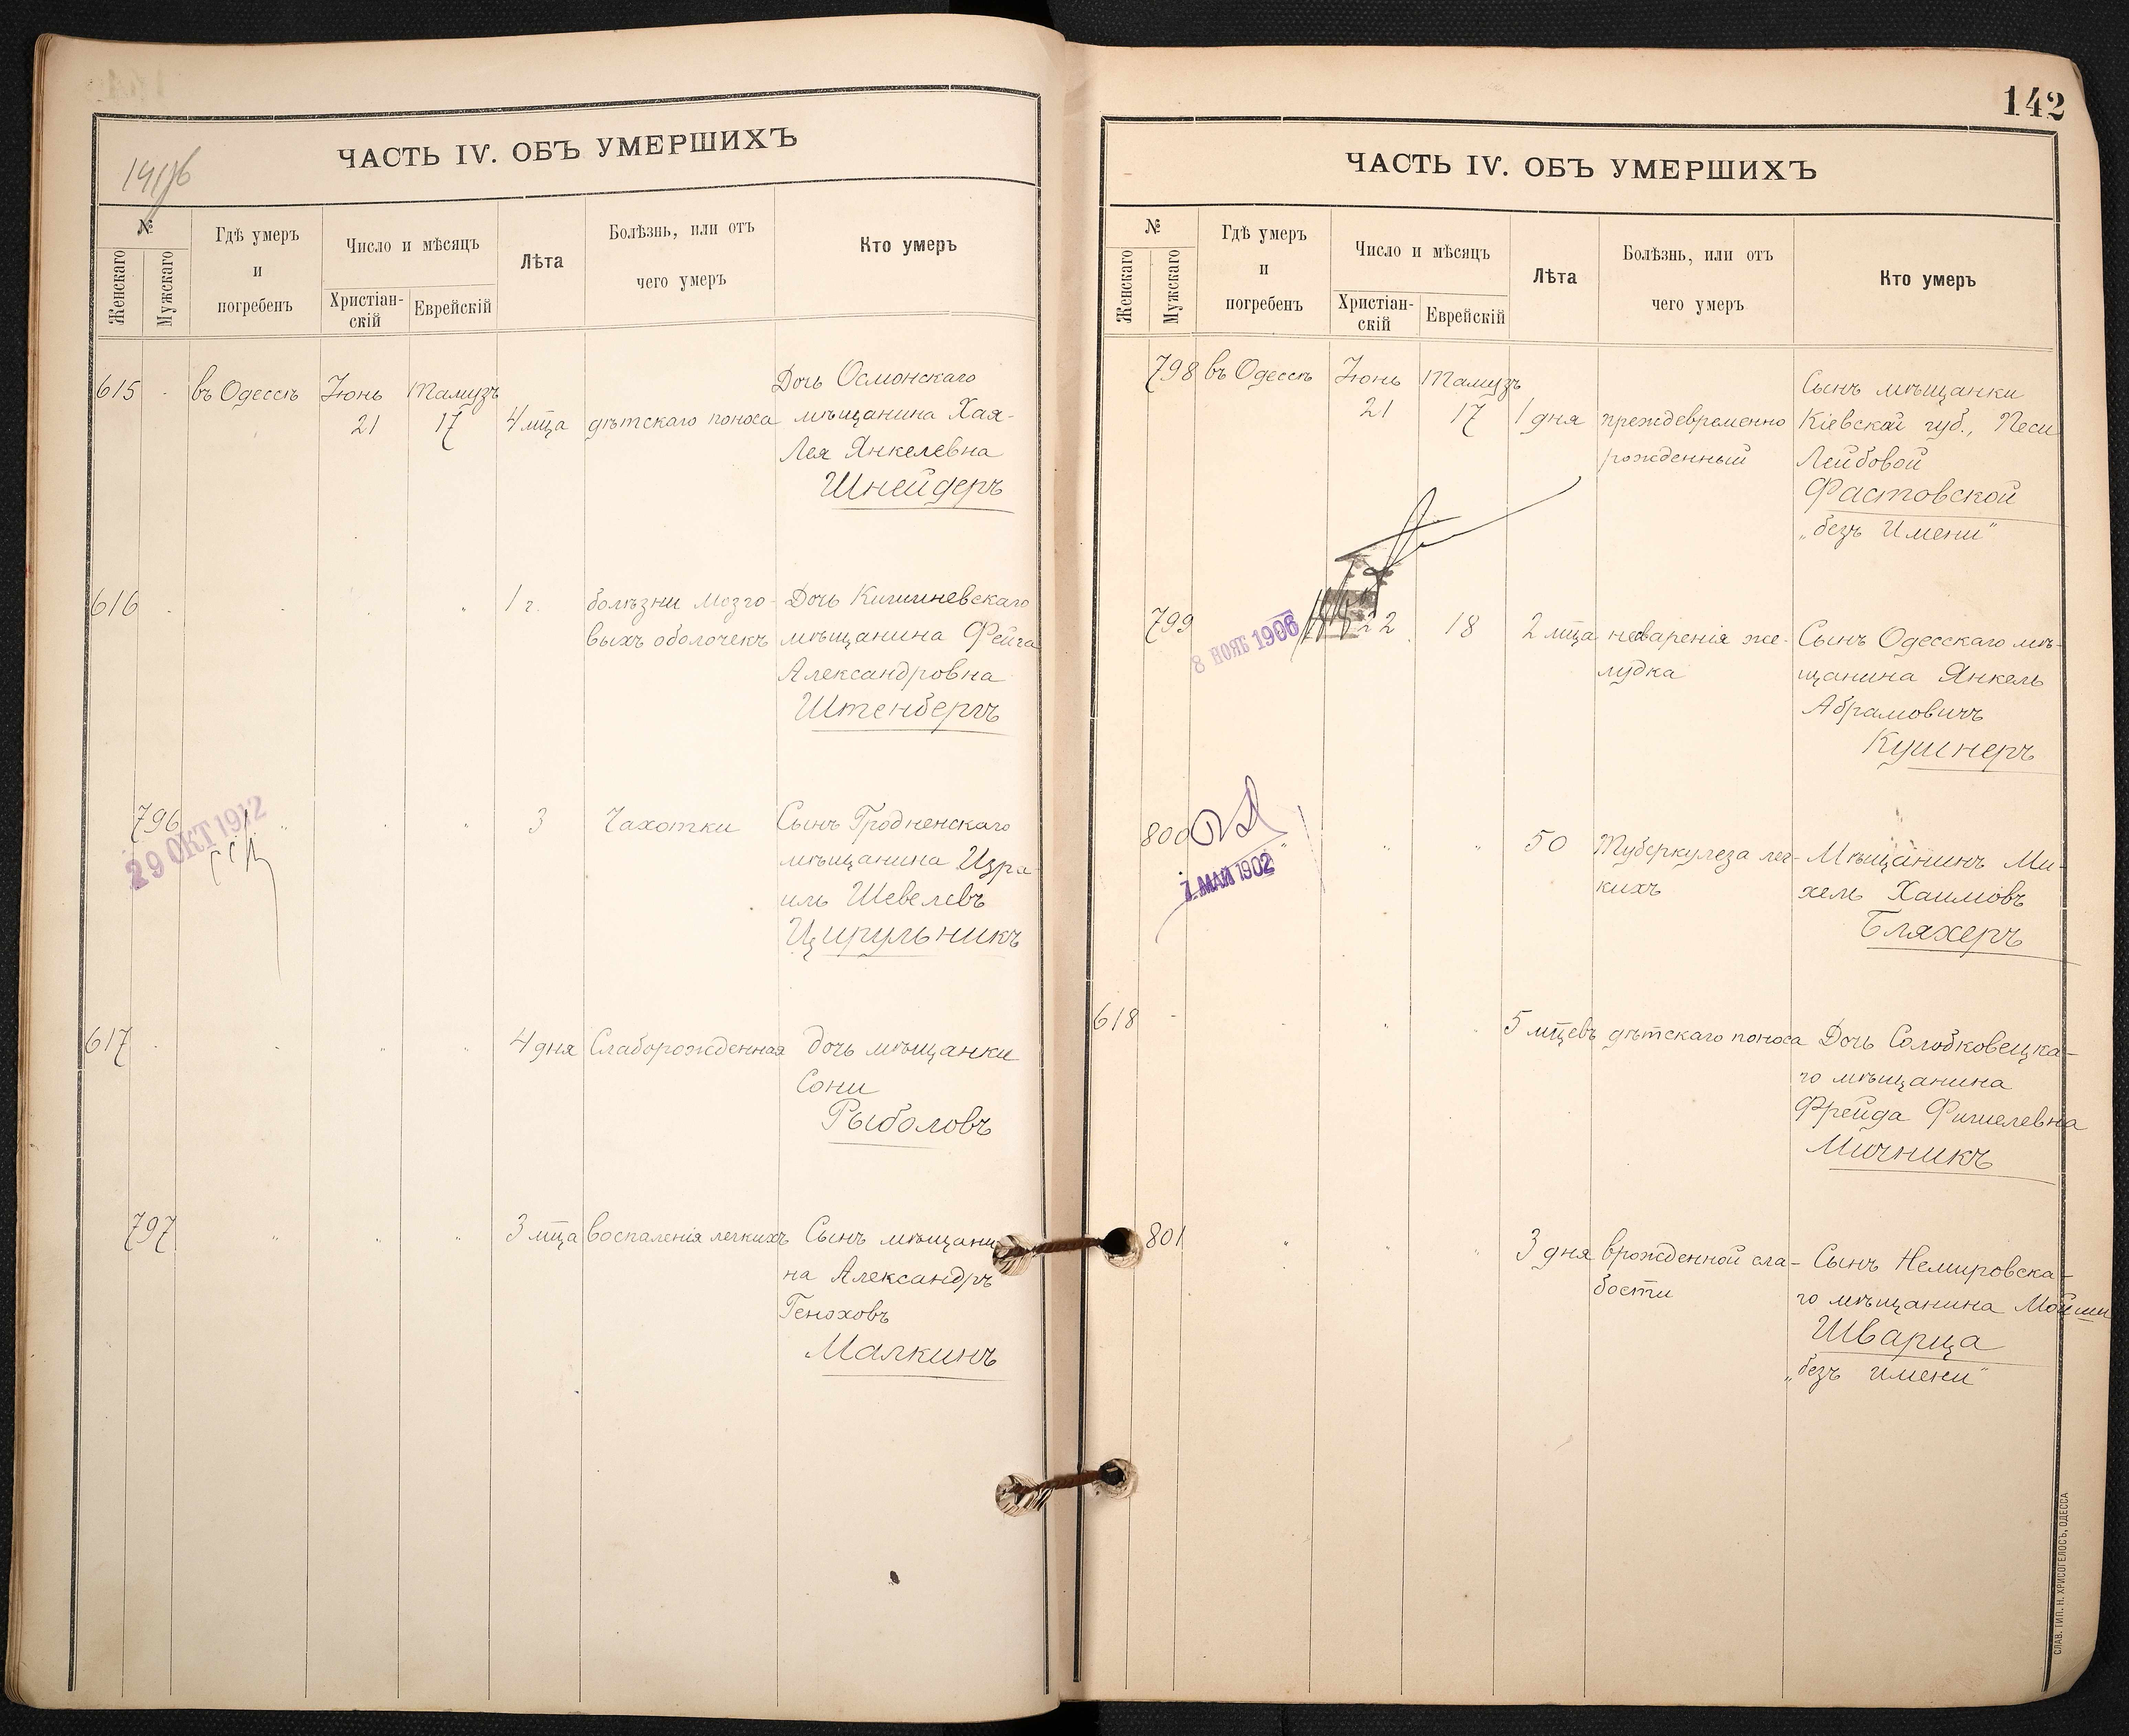 ЧАСТЬ IV. ОБЪ УМЕРШИХЪ
№
Женскаго
Мужскаго
Гдѣ умеръ
и
погребенъ
Число и мѣсяцъ
Христіан-
скій
Еврейскій
Лѣта
Болѣзнь, или отъ
чего умеръ
Кто умеръ
615 въ Одессѣ Іюнь Тамузъ Дочь Осмонскаго
21 17 4 мца дѣтскаго поноса мѣщанина Хая-
Лея Янкелевна
Шнейдеръ
616 1 г. болѣзни мозго- Дочь Кишиневскаго
выхъ оболочекъ мѣщанина Фейга
Александровна
Штенбергъ
796 " " 3 Чахотки Сынъ Гродненскаго
29 ОКТ 1912
мѣщанина Изра-
иль Шевелевъ
Цирульникъ
617 " " 4 дня Слаборожденная дочь мѣщанки
Сони
Рыболовъ
797 " " " 3 мца воспаленія легкихъ Сынъ мѣщани-
на Александръ
Геноховъ
Малкинъ
142
ЧАСТЬ IV. ОБЪ УМЕРШИХЪ
№
Женскаго
Мужскаго
Гдѣ умеръ
и
погребенъ
Число и мѣсяцъ
Христіан-
скій
Еврейскій
Лѣта
Болѣзнь, или отъ
чего умеръ
Кто умеръ
798 въ Одессѣ Іюнь Тамузъ Сынъ мѣщанки
21 17 1 дня преждевременно Кіевской губ., Песи
рожденный Лейбовой
Фастовской
„безъ Имени"
799 22 18 2 мца несваренія же- Сынъ Одесскаго мѣ-
8 НОЯБ 1906
лудка щанина Янкель
Абрамовичъ
Кушнеръ
800 " " " 50 Туберкулеза лег- Мѣщанинъ Ми-
кихъ хель Хаимовъ
7 МАЙ 1902
Бляхеръ
618 " " 5 мцевъ дѣтскаго поноса Дочь Солобковецка-
го мѣщанина
Фрейда Фишелевна
Мичникъ
801 " " " 3 дня врожденной сла- Сынъ Немировска-
бости го мѣщанина Мойши
Шварца
„безъ имени"
СЛАВ. ТИП. Н. ХРИСОГЕЛОСЪ, ОДЕССА